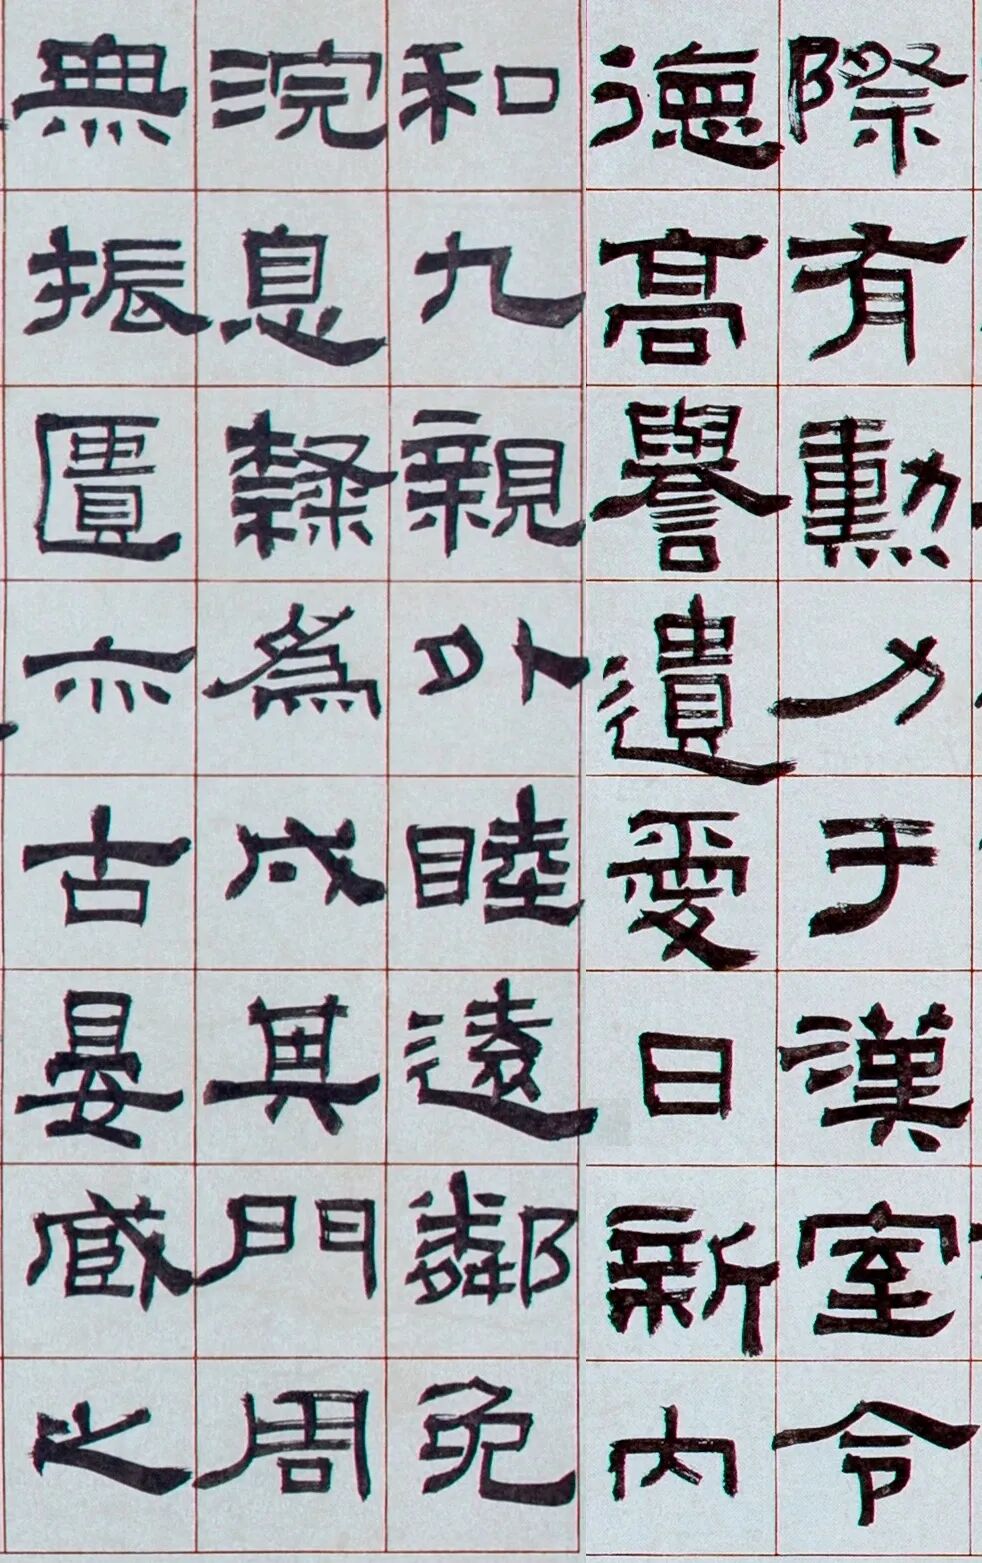 際有勳力于漢室令
德高譽遺愛日新內
和九親外睦遠鄰免
浣息隸為成其門周
無振匱亦古晏臧之